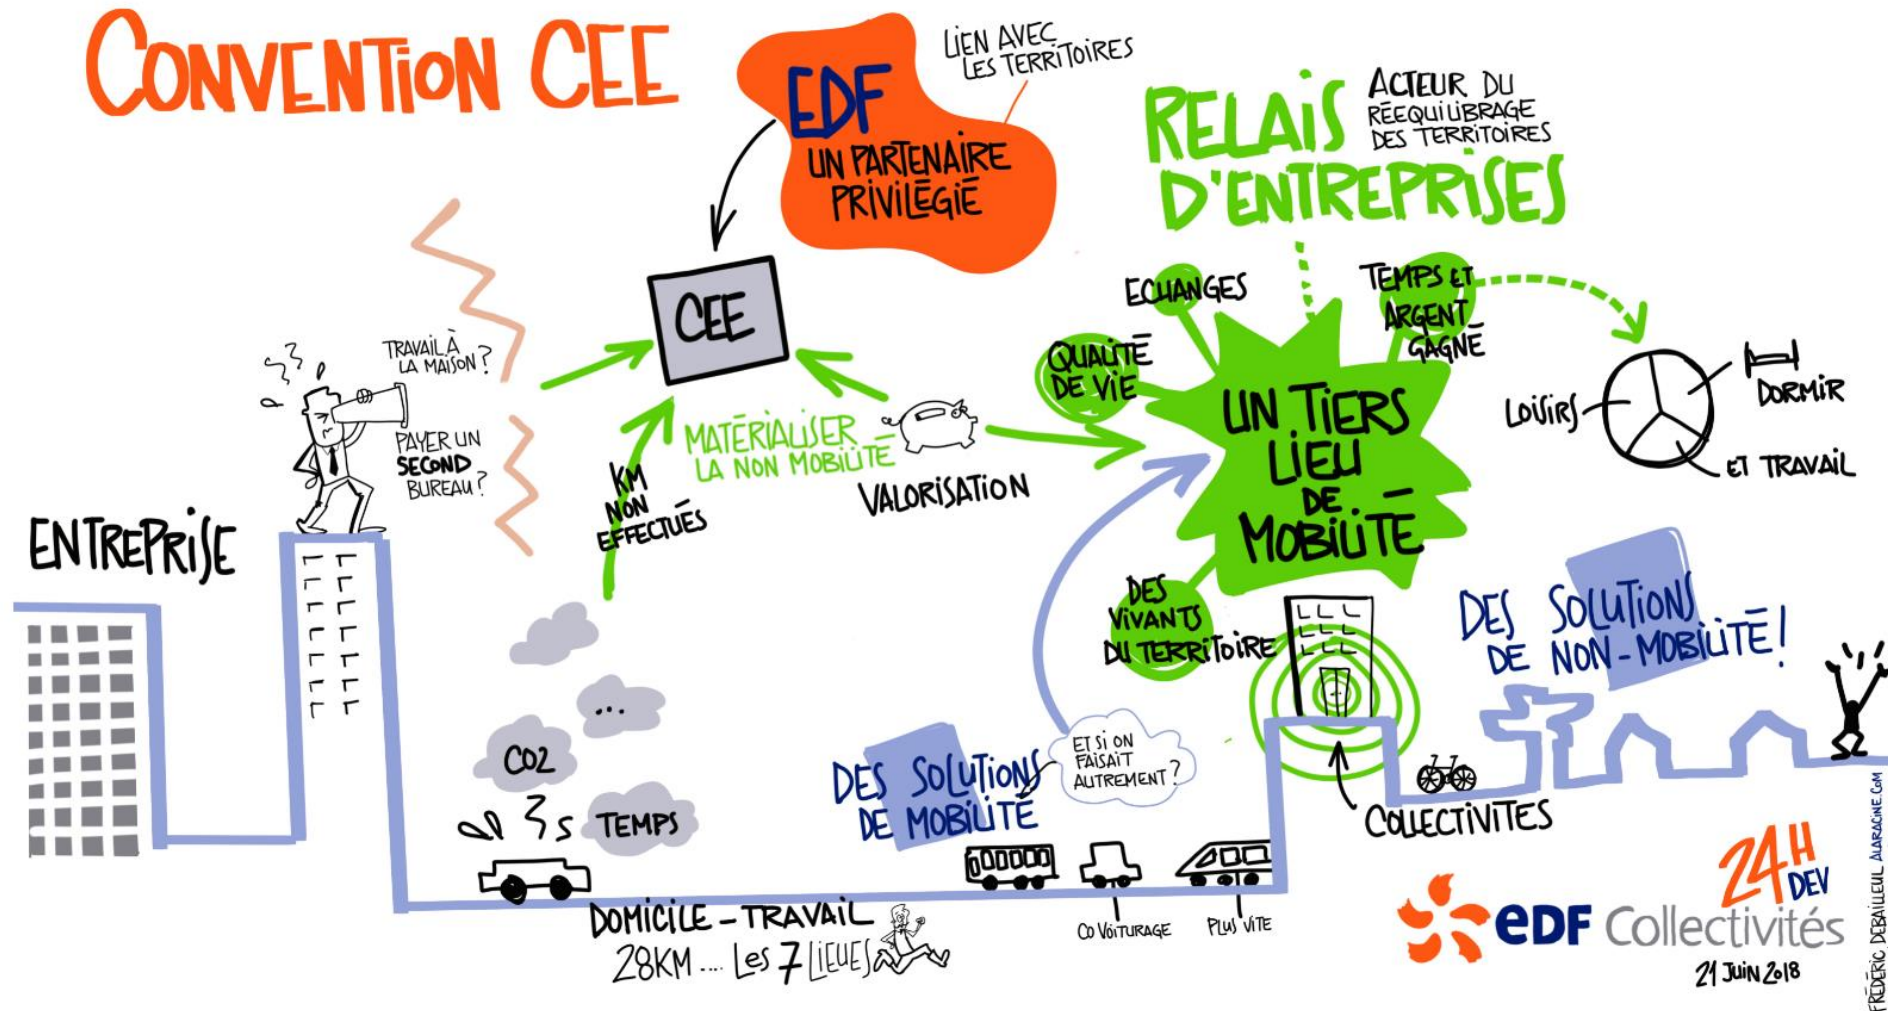 CONVENTION CEE
EDF
UN PARTENAIRE
PRIVILÉGIÉ
LIEN AVEC
LES TERRITOIRES
RELAIS
D'ENTREPRISES
ACTEUR DU
RÉEQUILIBRAGE
DES TERRITOIRES
CEE
TRAVAIL À
LA MAISON ?
PAYER UN
SECOND
BUREAU ?
ENTREPRISE
KM
NON
EFFECTUÉS
MATÉRIALISER
LA NON MOBILITÉ
VALORISATION
ECHANGES
QUALITÉ
DE VIE
TEMPS ET
ARGENT
GAGNÉ
UN TIERS
LIEU
DE
MOBILITÉ
DES
VIVANTS
DU TERRITOIRE
LOISIRS
DORMIR
ET TRAVAIL
DES SOLUTIONS
DE NON-MOBILITÉ !
...
CO2
TEMPS
DES SOLUTIONS
DE MOBILITÉ
ET SI ON
FAISAIT
AUTREMENT ?
COLLECTIVITES
DOMICILE - TRAVAIL
28KM .... LES 7 LIEUES
CO VOITURAGE
PLUS VITE
24H
DEV
eDF Collectivités
21 JUIN 2018
FRÉDÉRIC DEBAILLEUL ALARACINE.COM